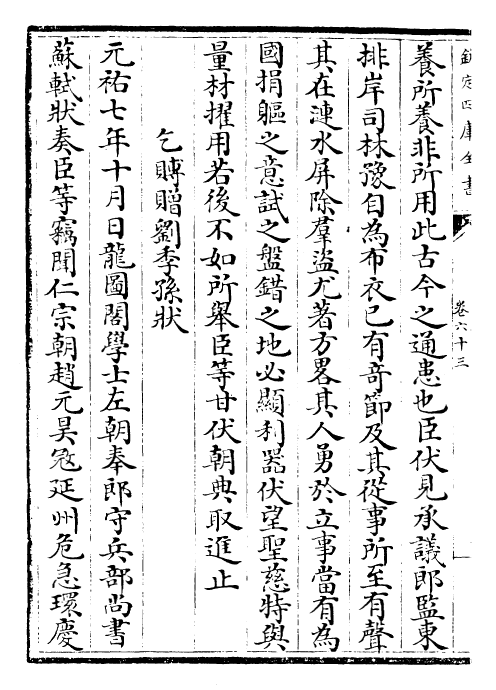 欽定四庫全書
卷六十三
養所養非所用此古今之通患也臣伏見承議郎監東
排岸司林豫自為布衣已有奇節及其從事所至有聲
其在漣水屏除羣盜尤著方畧其人勇於立事當有為
國捐軀之意試之盤錯之地必顯利器伏望聖慈特與
量材擢用若後不如所舉臣等甘伏朝典取進止
乞賻贈劉季孫狀
元祐七年十月日龍圖閣學士左朝奉郎守兵部尚書
蘇軾狀奏臣等竊聞仁宗朝趙元昊宼延州危急環慶